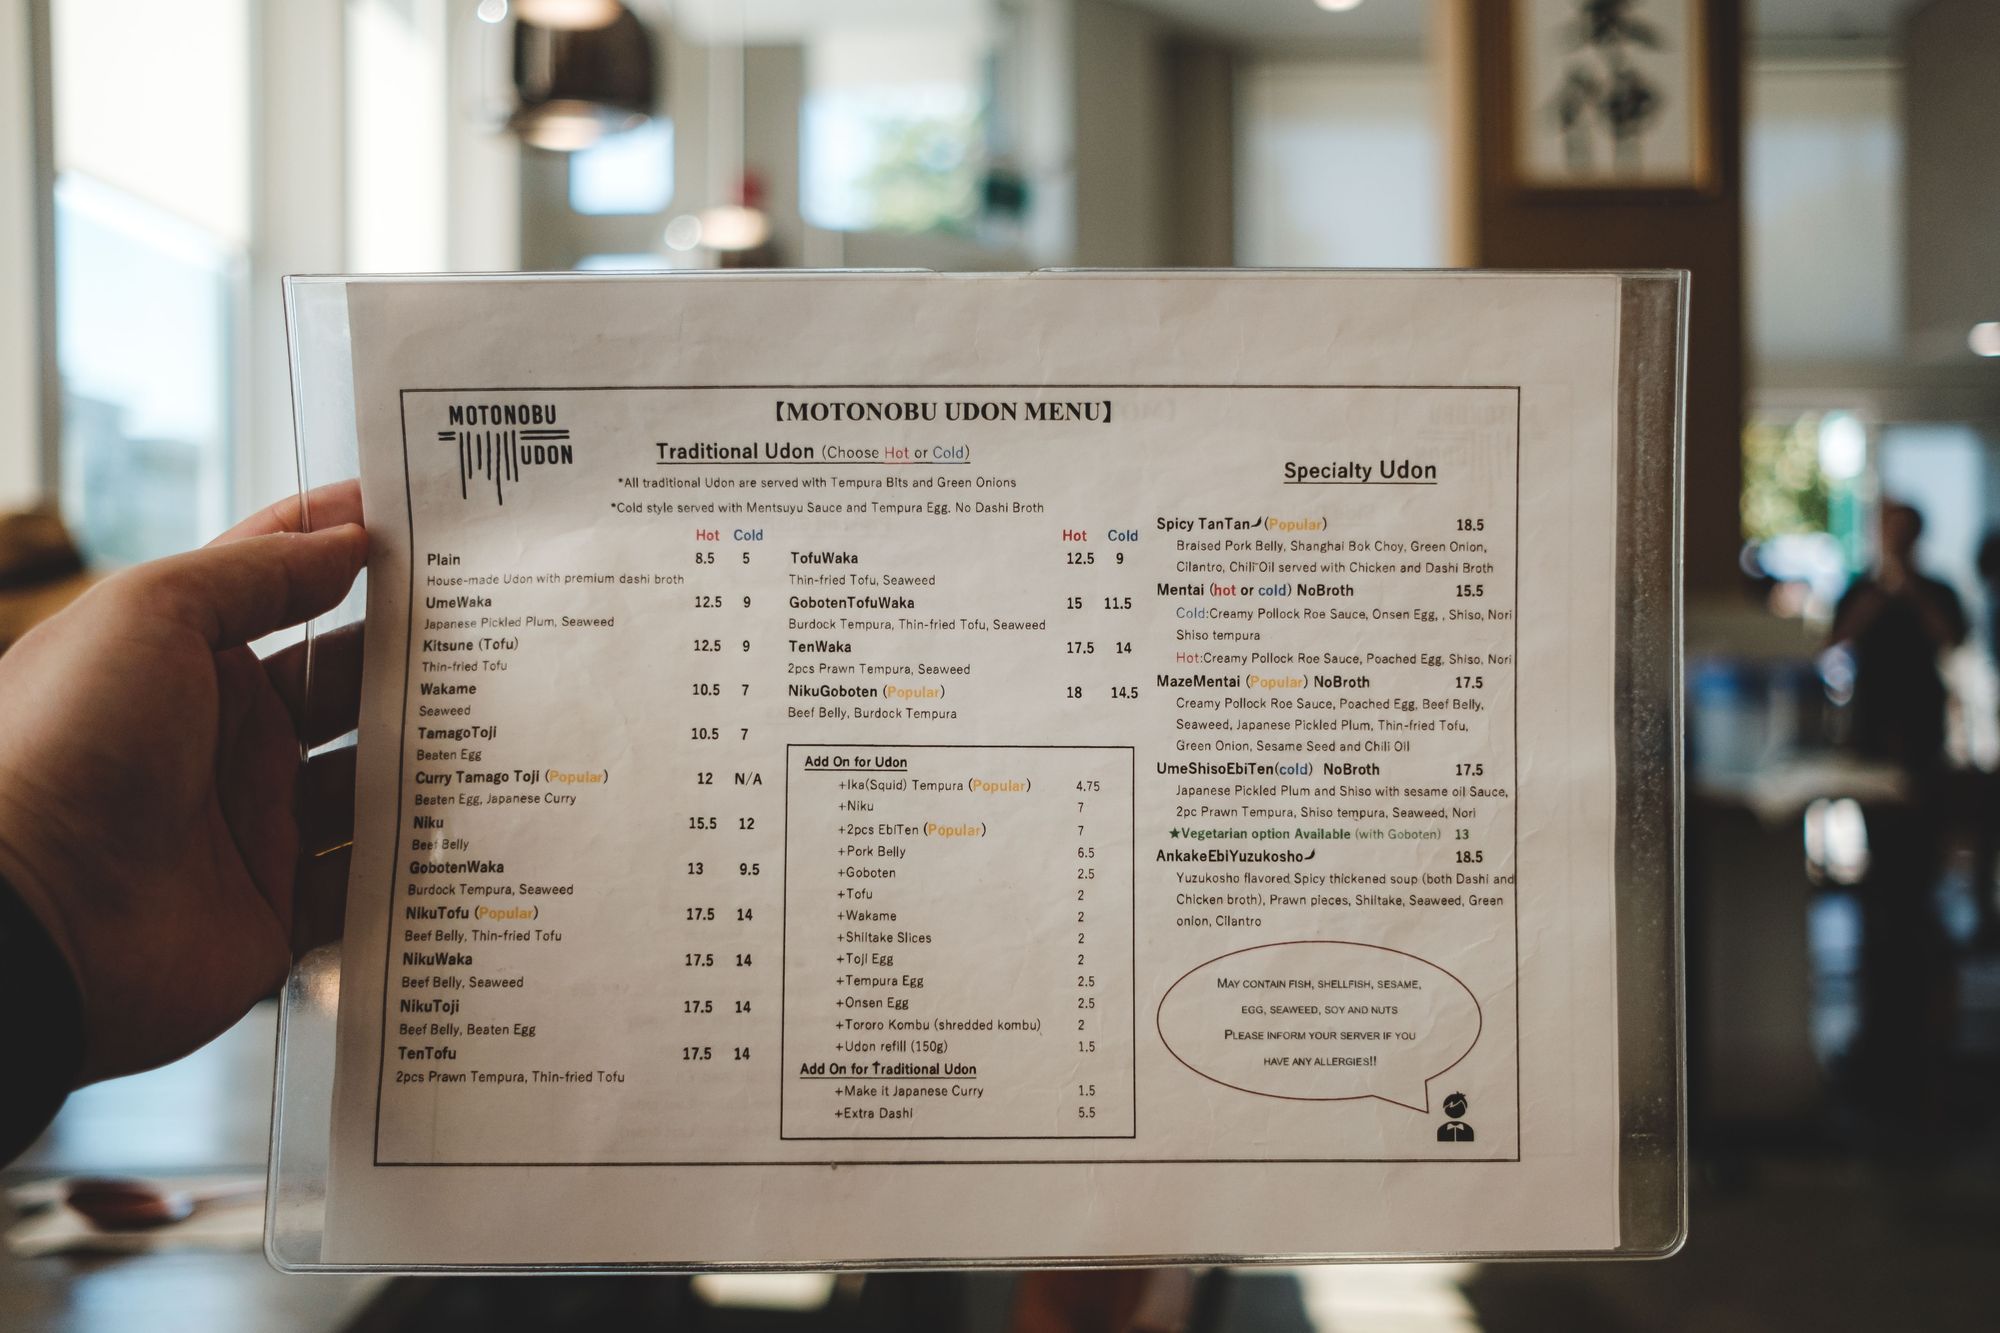 MOTONOBU
UDON
【MOTONOBU UDON MENU】
Traditional Udon (Choose Hot or Cold)
*All traditional Udon are served with Tempura Bits and Green Onions
*Cold style served with Mentsuyu Sauce and Tempura Egg. No Dashi Broth
Hot Cold
Plain 8.5 5
House-made Udon with premium dashi broth
UmeWaka 12.5 9
Japanese Pickled Plum, Seaweed
Kitsune (Tofu) 12.5 9
Thin-fried Tofu
Wakame 10.5 7
Seaweed
TamagoToji 10.5 7
Beaten Egg
Curry Tamago Toji (Popular) 12 N/A
Beaten Egg, Japanese Curry
Niku 15.5 12
Beef Belly
GobotenWaka 13 9.5
Burdock Tempura, Seaweed
NikuTofu (Popular) 17.5 14
Beef Belly, Thin-fried Tofu
NikuWaka 17.5 14
Beef Belly, Seaweed
NikuToji 17.5 14
Beef Belly, Beaten Egg
TenTofu 17.5 14
2pcs Prawn Tempura, Thin-fried Tofu
Hot Cold
TofuWaka 12.5 9
Thin-fried Tofu, Seaweed
GobotenTofuWaka 15 11.5
Burdock Tempura, Thin-fried Tofu, Seaweed
TenWaka 17.5 14
2pcs Prawn Tempura, Seaweed
NikuGoboten (Popular) 18 14.5
Beef Belly, Burdock Tempura
Add On for Udon
+Ika(Squid) Tempura (Popular) 4.75
+Niku 7
+2pcs EbiTen (Popular) 7
+Pork Belly 6.5
+Goboten 2.5
+Tofu 2
+Wakame 2
+Shiitake Slices 2
+Toji Egg 2
+Tempura Egg 2.5
+Onsen Egg 2.5
+Tororo Kombu (shredded kombu) 2
+Udon refill (150g) 1.5
Add On for Traditional Udon
+Make it Japanese Curry 1.5
+Extra Dashi 5.5
Specialty Udon
Spicy TanTan (Popular) 18.5
Braised Pork Belly, Shanghai Bok Choy, Green Onion,
Cilantro, Chili Oil served with Chicken and Dashi Broth
Mentai (hot or cold) NoBroth 15.5
Cold:Creamy Pollock Roe Sauce, Onsen Egg, , Shiso, Nori
Shiso tempura
Hot:Creamy Pollock Roe Sauce, Poached Egg, Shiso, Nori
MazeMentai (Popular) NoBroth 17.5
Creamy Pollock Roe Sauce, Poached Egg, Beef Belly,
Seaweed, Japanese Pickled Plum, Thin-fried Tofu,
Green Onion, Sesame Seed and Chili Oil
UmeShisoEbiTen(cold) NoBroth 17.5
Japanese Pickled Plum and Shiso with sesame oil Sauce,
2pc Prawn Tempura, Shiso tempura, Seaweed, Nori
★Vegetarian option Available (with Goboten) 13
AnkakeEbiYuzukosho 18.5
Yuzukosho flavored Spicy thickened soup (both Dashi and
Chicken broth), Prawn pieces, Shiitake, Seaweed, Green
onion, Cilantro
MAY CONTAIN FISH, SHELLFISH, SESAME,
EGG, SEAWEED, SOY AND NUTS
PLEASE INFORM YOUR SERVER IF YOU
HAVE ANY ALLERGIES!!